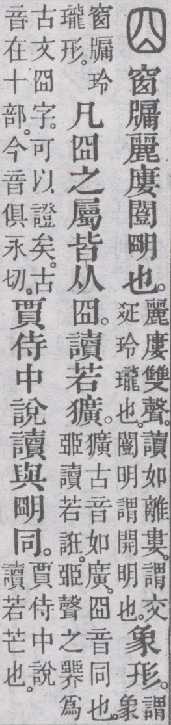 囧 窗牖麗廔闓朙也。麗廔雙聲。讀如離婁。謂交玲瓏也。闓明謂開明也。象形。謂象
窗牖玲瓏形。凡囧之屬皆从囧。讀若獷。獷古音如廣。囧音同也。臦讀若誑。臦聲之臩爲
古文囧字。可以證矣。古音在十部。今音俱永切。賈侍中說讀與朙同。賈侍中說讀若芒也。